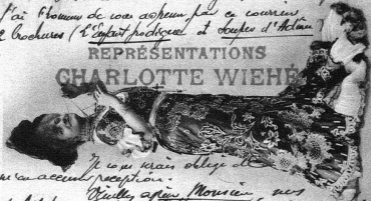 j'ai l'honneur de vous adresser par ce courrier
2 brochures (L'Enfant prodigue et
REPRÉSENTATIONS
CHARLOTTE WIEHÉ
Je vous serais obligé de
m'en accuser réception.
Veuillez agréer, Monsieur, mes